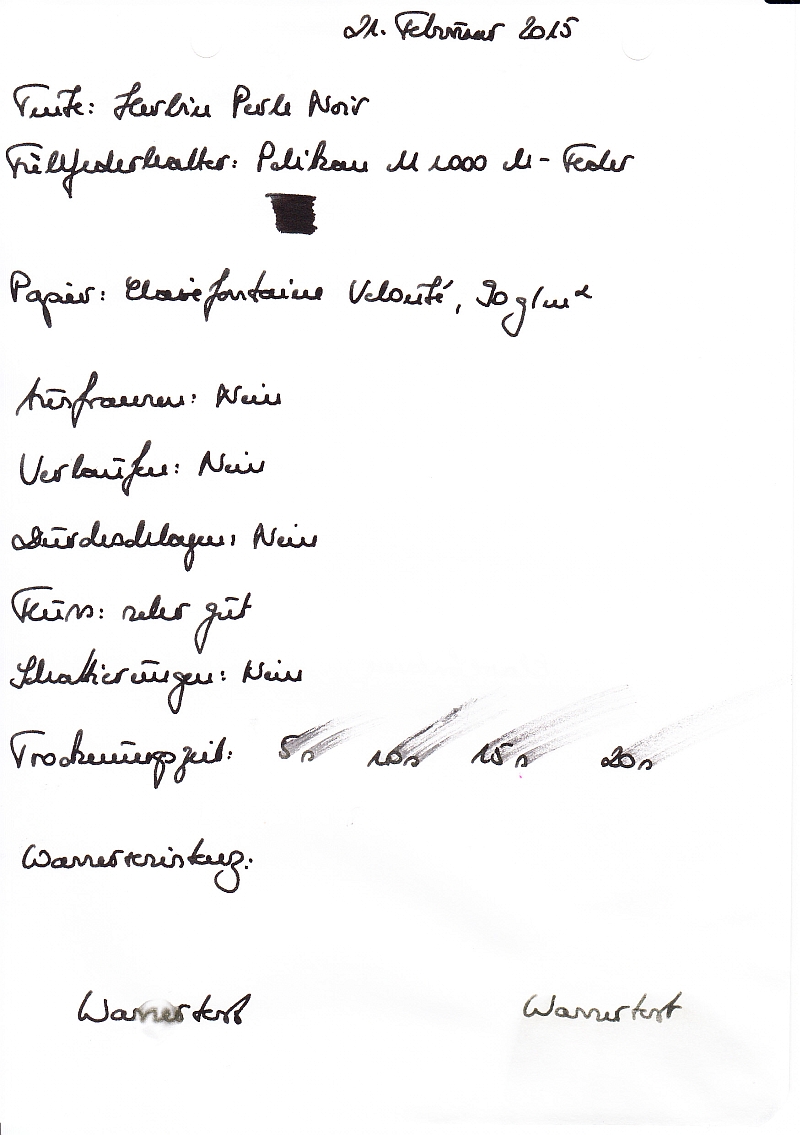 21. Februar 2015
Tinte: Herbin Perle Noir
Füllfederhalter: Pelikan M 1000 M-Feder
Papier: Clairefontaine Velouté, 90 g/m²
Ausfransen: Nein
Verlaufen: Nein
Durchschlagen: Nein
Fluss: sehr gut
Schattierungen: Nein
Trocknungszeit: 5s 10s 15s 20s
Wasserresistenz:
Wassertest Wassertest